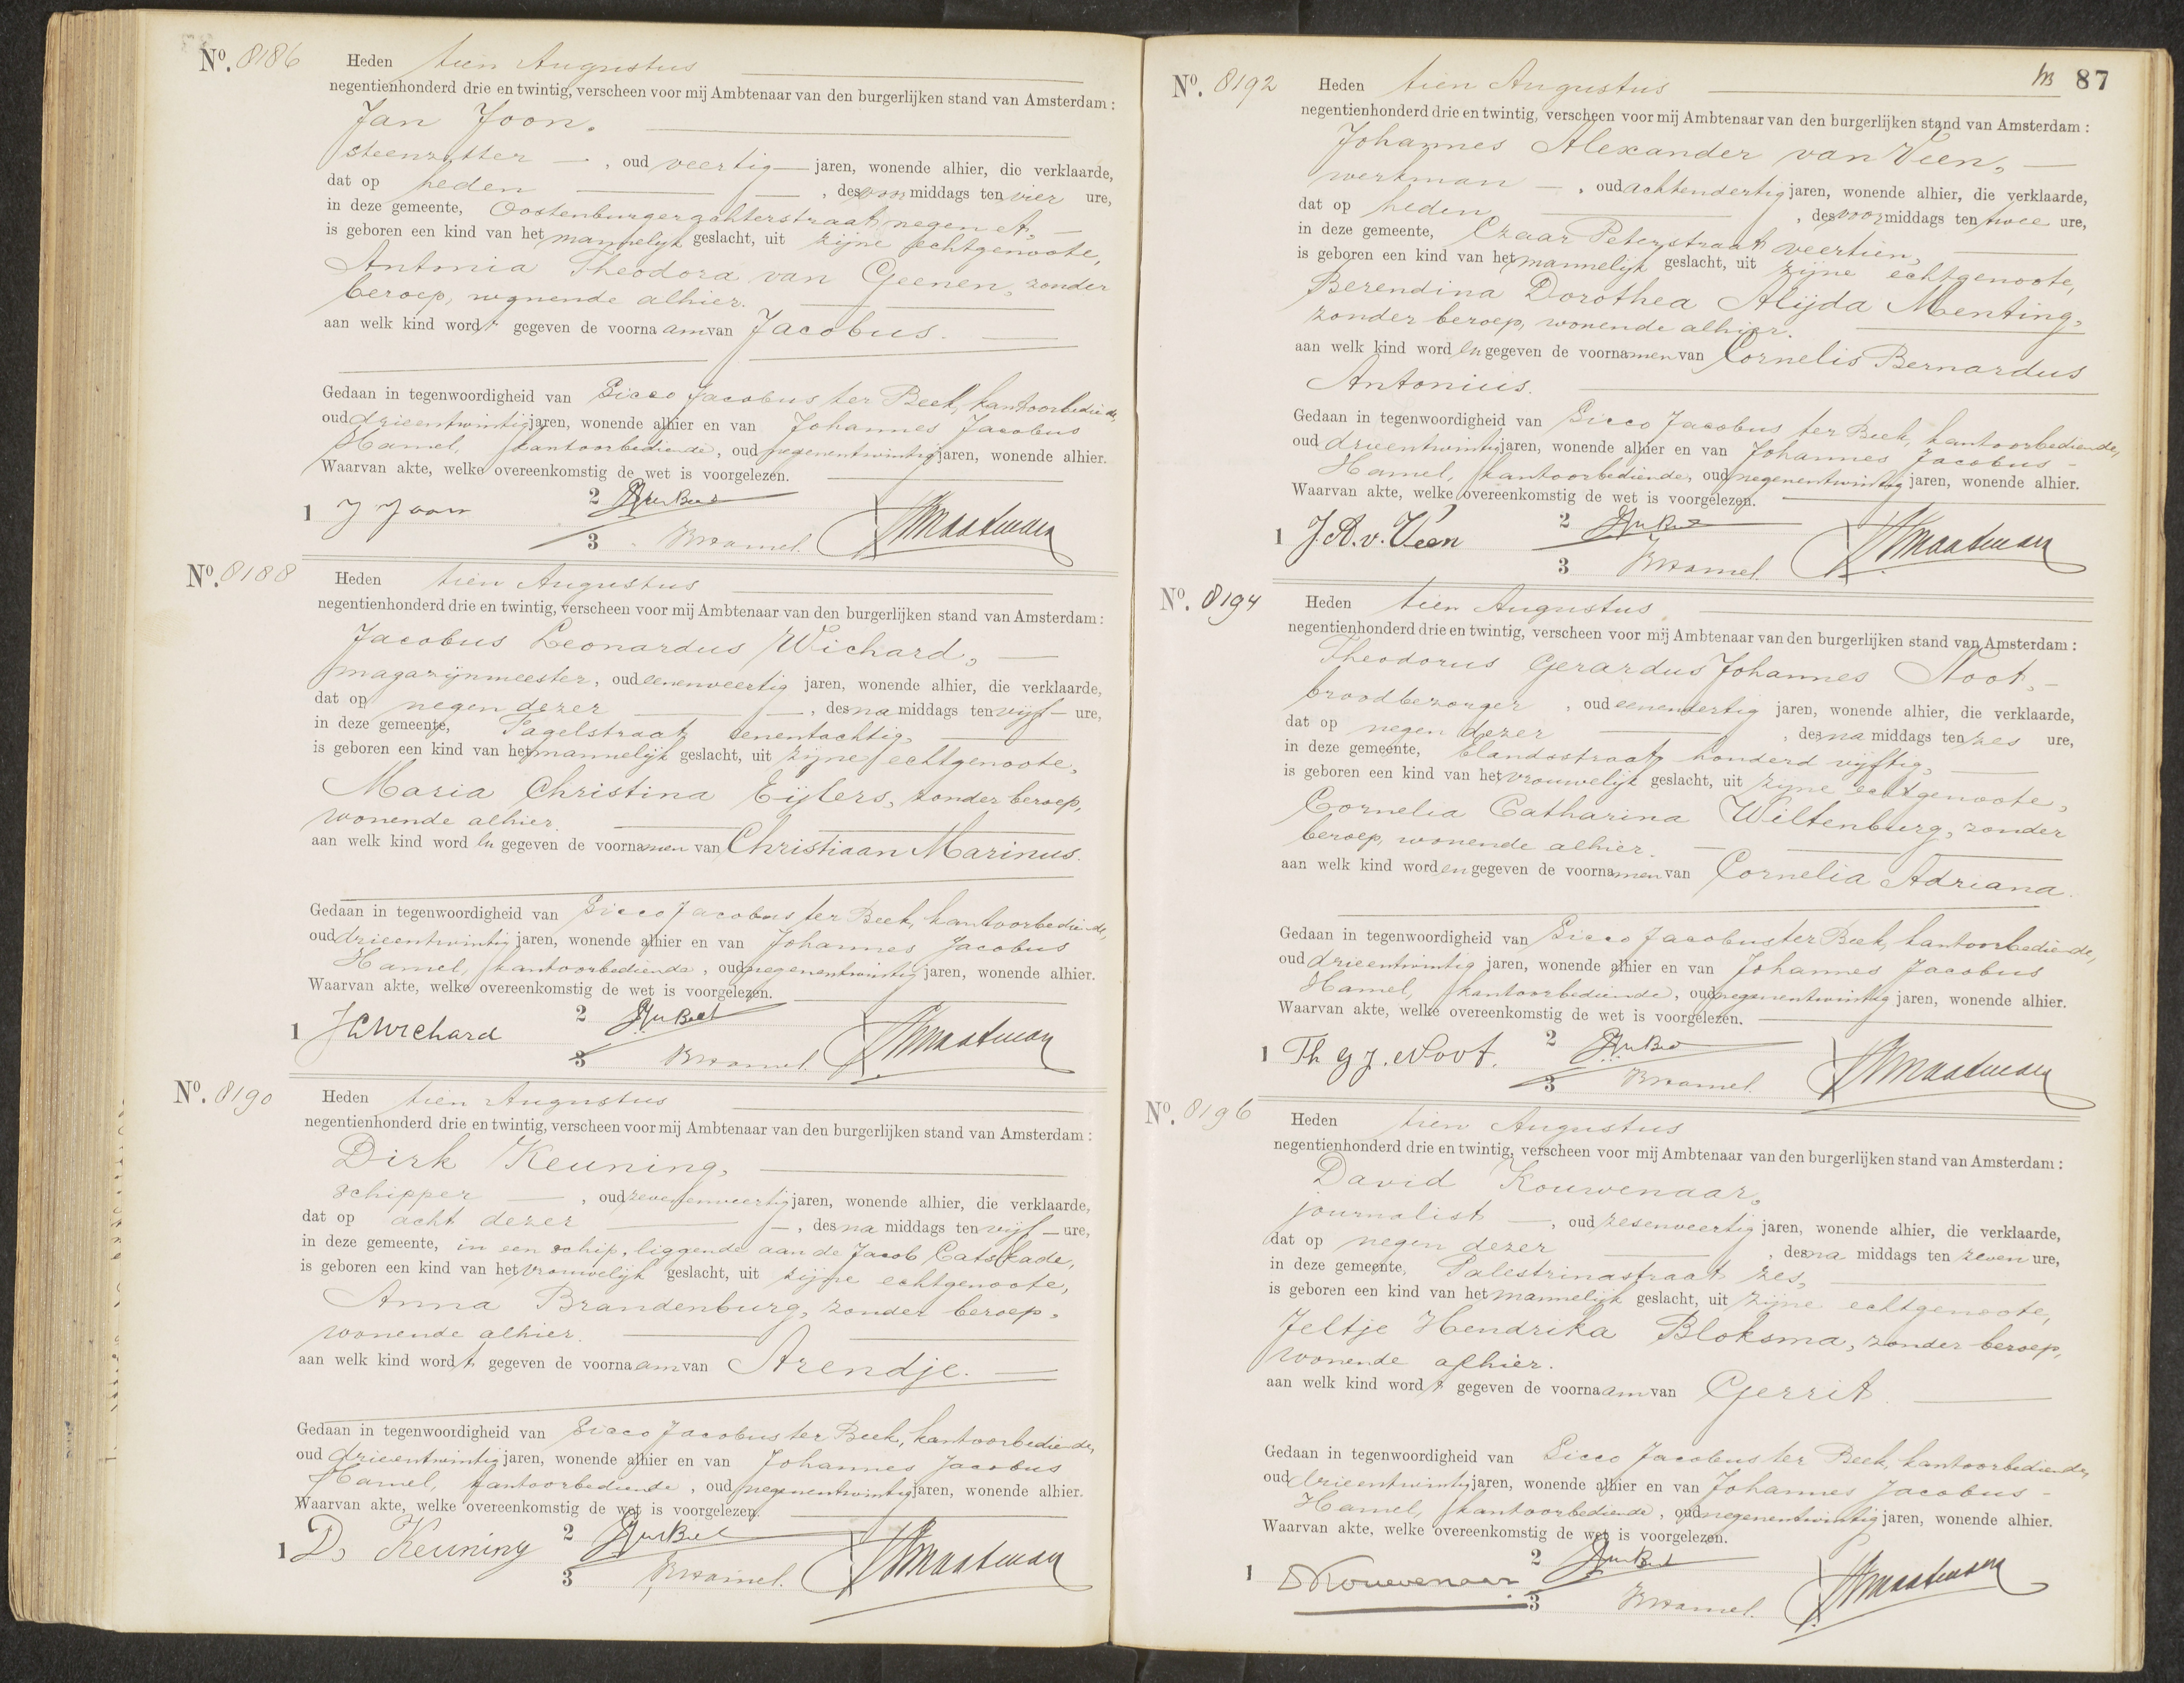 No. 8186
Heden tien Augustus
negentienhonderd drie en twintig, verscheen voor mij Ambtenaar van den burgerlijken stand van Amsterdam:
Jan Joon.
steenzetter, oud veertig jaren, wonende alhier, die verklaarde,
dat op heden, des voor middags ten vier ure,
in deze gemeente, Oostenburgerachterstraat negen A,
is geboren een kind van het mannelijk geslacht, uit zijne echtgenoote,
Antonia Theodora van Geenen, zonder
beroep, wonende alhier.
aan welk kind wordt gegeven de voornaam van Jacobus.
Gedaan in tegenwoordigheid van Sicco Jacobus ter Beek, kantoorbediende,
oud drieentwintig jaren, wonende alhier en van Johannes Jacobus
Hamel, kantoorbediende, oud negenentwintig jaren, wonende alhier.
Waarvan akte, welke overeenkomstig de wet is voorgelezen.
1 J Joon 2 SJterBeek
3 JJHamel.
No. 8188
Heden tien Augustus
negentienhonderd drie en twintig, verscheen voor mij Ambtenaar van den burgerlijken stand van Amsterdam:
Jacobus Leonardus Wichard,
magazijnmeester, oud eenenveertig jaren, wonende alhier, die verklaarde,
dat op negen dezer, des na middags ten vijf ure,
in deze gemeente, Pagelstraat eenentachtig,
is geboren een kind van het mannelijk geslacht, uit zijne echtgenoote,
Maria Christina Eijlers, zonder beroep,
wonende alhier.
aan welk kind worden gegeven de voornamen van Christiaan Marinus.
Gedaan in tegenwoordigheid van Sicco Jacobus ter Beek, kantoorbediende,
oud drieentwintig jaren, wonende alhier en van Johannes Jacobus
Hamel, kantoorbediende, oud negenentwintig jaren, wonende alhier.
Waarvan akte, welke overeenkomstig de wet is voorgelezen.
1 JLWichard 2 SJterBeek
3 JJHamel.
No. 8190
Heden tien Augustus
negentienhonderd drie en twintig, verscheen voor mij Ambtenaar van den burgerlijken stand van Amsterdam:
Dirk Keuning,
schipper, oud zevenenveertig jaren, wonende alhier, die verklaarde,
dat op acht dezer, des na middags ten vijf ure,
in deze gemeente, in een schip, liggende aan de Jacob Catskade,
is geboren een kind van het vrouwelijk geslacht, uit zijne echtgenoote,
Anna Brandenburg, zonder beroep,
wonende alhier.
aan welk kind wordt gegeven de voornaam van Arendje.
Gedaan in tegenwoordigheid van Sicco Jacobus ter Beek, kantoorbediende,
oud drieentwintig jaren, wonende alhier en van Johannes Jacobus
Hamel, kantoorbediende, oud negenentwintig jaren, wonende alhier.
Waarvan akte, welke overeenkomstig de wet is voorgelezen.
1 D. Keuning 2 SJterBeek
3 JJHamel.
87
No. 8192
Heden tien Augustus
negentienhonderd drie en twintig, verscheen voor mij Ambtenaar van den burgerlijken stand van Amsterdam:
Johannes Alexander van Veen,
werkman, oud achtendertig jaren, wonende alhier, die verklaarde,
dat op heden, des voor middags ten twee ure,
in deze gemeente, Czaar Peterstraat veertien,
is geboren een kind van het mannelijk geslacht, uit zijne echtgenoote,
Berendina Dorothea Alijda Menting,
zonder beroep, wonende alhier.
aan welk kind worden gegeven de voornamen van Cornelis Bernardus
Antonius.
Gedaan in tegenwoordigheid van Sicco Jacobus ter Beek, kantoorbediende,
oud drieentwintig jaren, wonende alhier en van Johannes Jacobus
Hamel, kantoorbediende, oud negenentwintig jaren, wonende alhier.
Waarvan akte, welke overeenkomstig de wet is voorgelezen.
1 J.A.v.Veen 2 SJterBeek
3 JJHamel.
No. 8194
Heden tien Augustus
negentienhonderd drie en twintig, verscheen voor mij Ambtenaar van den burgerlijken stand van Amsterdam:
Theodorus Gerardus Johannes Noot,
broodbezorger, oud eenendertig jaren, wonende alhier, die verklaarde,
dat op negen dezer, des na middags ten zes ure,
in deze gemeente, Elandsstraat honderd vijftig,
is geboren een kind van het vrouwelijk geslacht, uit zijne echtgenoote,
Cornelia Catharina Wiltenburg, zonder
beroep, wonende alhier.
aan welk kind worden gegeven de voornamen van Cornelia Adriana.
Gedaan in tegenwoordigheid van Sicco Jacobus ter Beek, kantoorbediende,
oud drieentwintig jaren, wonende alhier en van Johannes Jacobus
Hamel, kantoorbediende, oud negenentwintig jaren, wonende alhier.
Waarvan akte, welke overeenkomstig de wet is voorgelezen.
1 Th G J. Noot. 2 SJterBeek
3 JJHamel.
No. 8196
Heden tien Augustus
negentienhonderd drie en twintig, verscheen voor mij Ambtenaar van den burgerlijken stand van Amsterdam:
David Kouwenaar,
journalist, oud zesenveertig jaren, wonende alhier, die verklaarde,
dat op negen dezer, des na middags ten zeven ure,
in deze gemeente, Palestrinastraat zes,
is geboren een kind van het mannelijk geslacht, uit zijne echtgenoote,
Jeltje Hendrika Bloksma, zonder beroep,
wonende alhier.
aan welk kind wordt gegeven de voornaam van Gerrit
Gedaan in tegenwoordigheid van Sicco Jacobus ter Beek, kantoorbediende,
oud drieentwintig jaren, wonende alhier en van Johannes Jacobus
Hamel, kantoorbediende, oud negenentwintig jaren, wonende alhier.
Waarvan akte, welke overeenkomstig de wet is voorgelezen.
1 DKouwenaar 2 SJterBeek
3 JJHamel.